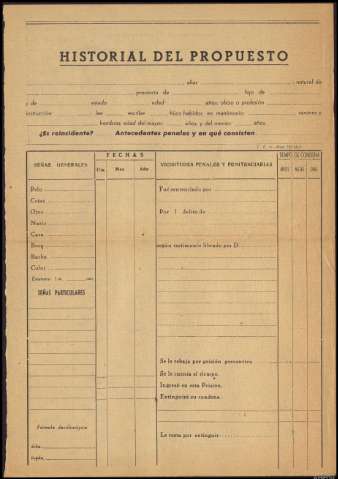 HISTORIAL DEL PROPUESTO
años natural de
provincia de hijo de
y de estado edad años, oficio o profesión
instrucción lee escribe hijos habidos en matrimonio varones y
hembras, edad del mayor años y del menor años.
¿Es reincidente? Antecedentes penales y en qué consisten
SEÑAS GENERALES
FECHAS
Día Mes Año
VICISITUDES PENALES Y PENITENCIARIAS
TIEMPO DE CONDENA
AÑOS MESES DIAS
Pelo
Cejas
Ojos
Nariz
Cara
Boca
Barba
Color
Estatura 1 m.
SEÑAS PARTICULARES
Fué sentenciado por
Por 1 delito de
según testimonio librado por D.
Se le rebaja por prisión preventiva
Se le cuenta el tiempo.
Ingresó en esta Prisión.
Extinguirá su condena.
Fórmula dactiloscópica
Le resta por extinguir